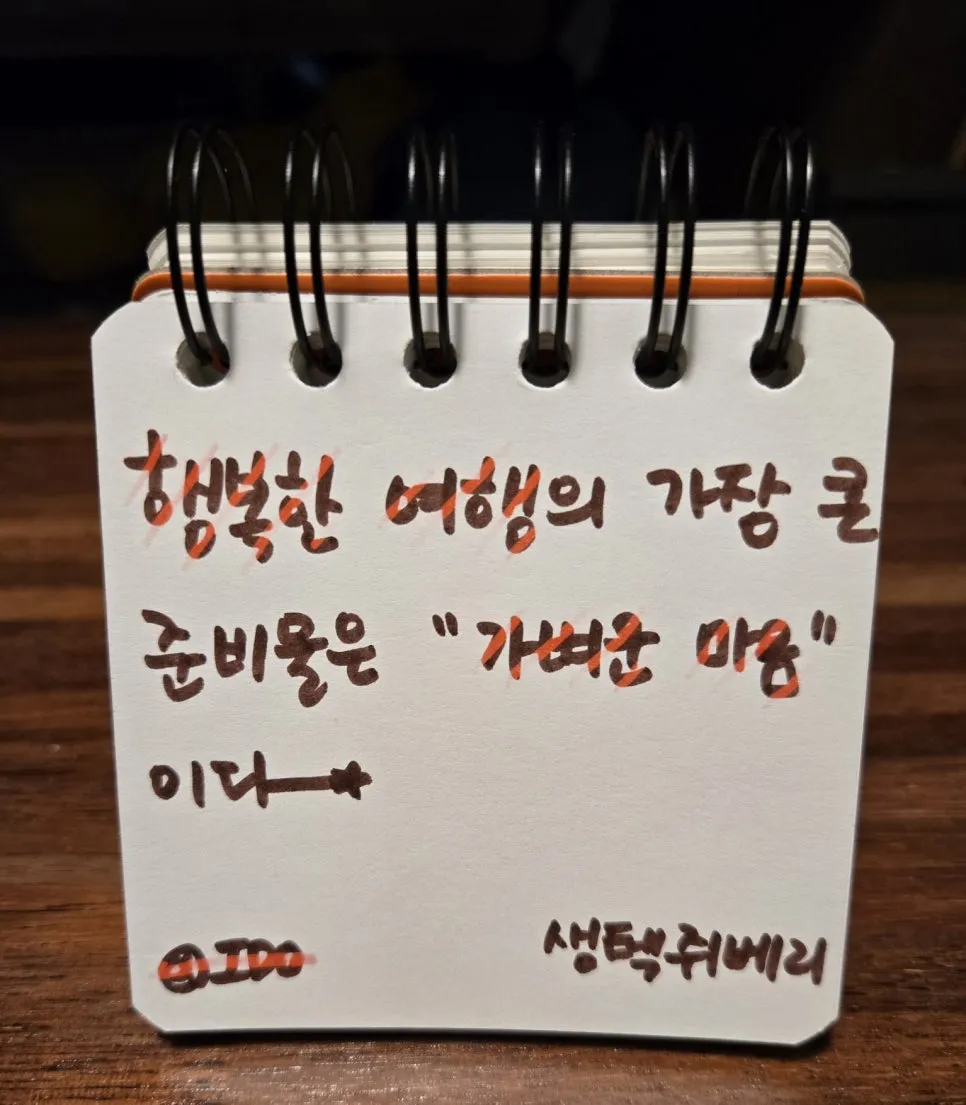 행복한 여행의 가장 큰
준비물은 "가벼운 마음"
이다
@IDO
생텍쥐베리